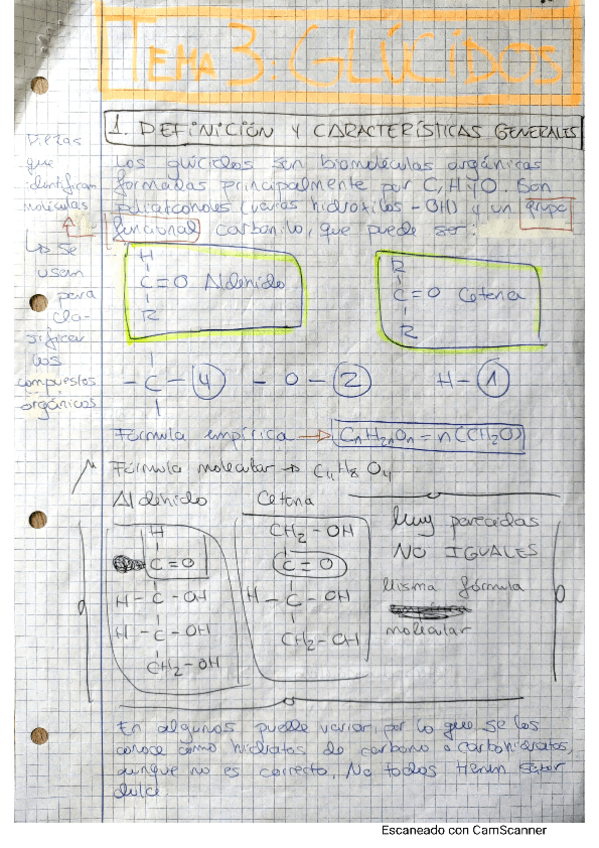 TEMA 3: GLÚCIDOS
1. DEFINICIÓN Y CARACTERÍSTICAS GENERALES
Piezas
que
identifican
moléculas
↳ se
usan
para
cla-
sificar
los
compuestos
orgánicos
Los glúcidos son biomoléculas orgánicas
formadas principalmente por C, H y O. Son
polialcoholes (varios hidroxilos -OH) y un grupo
funcional carbonilo, que puede ser:
H
C=O Aldehido
R
R
C=O Cetona
R
-C- 4 -O- 2 H- 1
Fórmula empírica → CnH2nOn = n(CH2O)
Fórmula molecular → C4H8O4
Aldehido Cetona
H
C=O
H-C-OH
H-C-OH
CH2-OH
CH2-OH
C=O
H-C-OH
CH2-OH
Muy parecidas
NO IGUALES
Misma fórmula
molecular
En algunos puede variar, por lo que se los
conoce como hidratos de carbono o carbohidratos,
aunque no es correcto. No todos tienen sabor
dulce.
Escaneado con CamScanner